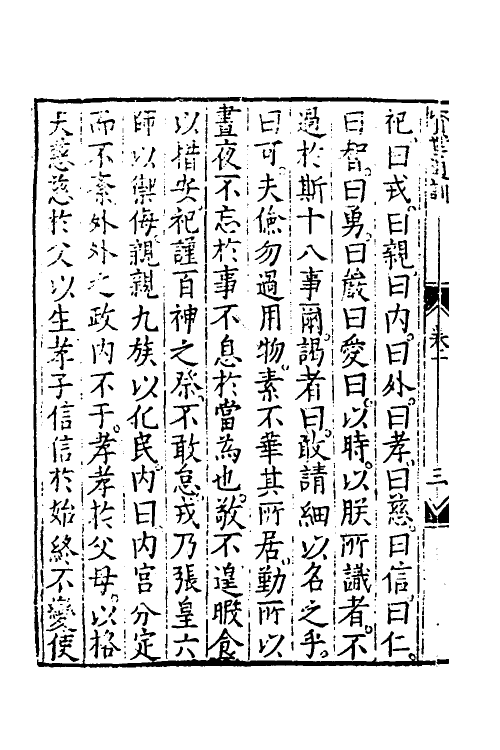 祀曰戎曰親曰内曰外曰孝曰慈曰信曰仁
曰智曰勇曰嚴曰愛曰以時以朕所識者不
過於斯十八事爾謁者曰敢請細以名之乎
曰可夫儉勿過用物素不華其所居勤所以
晝夜不忘於事不息於當為也敬不遑暇食
以措安祀謹百神之祭不敢怠戎乃張皇六
師以禦侮親親九族以化民内曰内宫分定
而不紊外外之政内不于孝孝於父母以格
天慈慈於父以生孝子信信於始終不變使
卷一
三